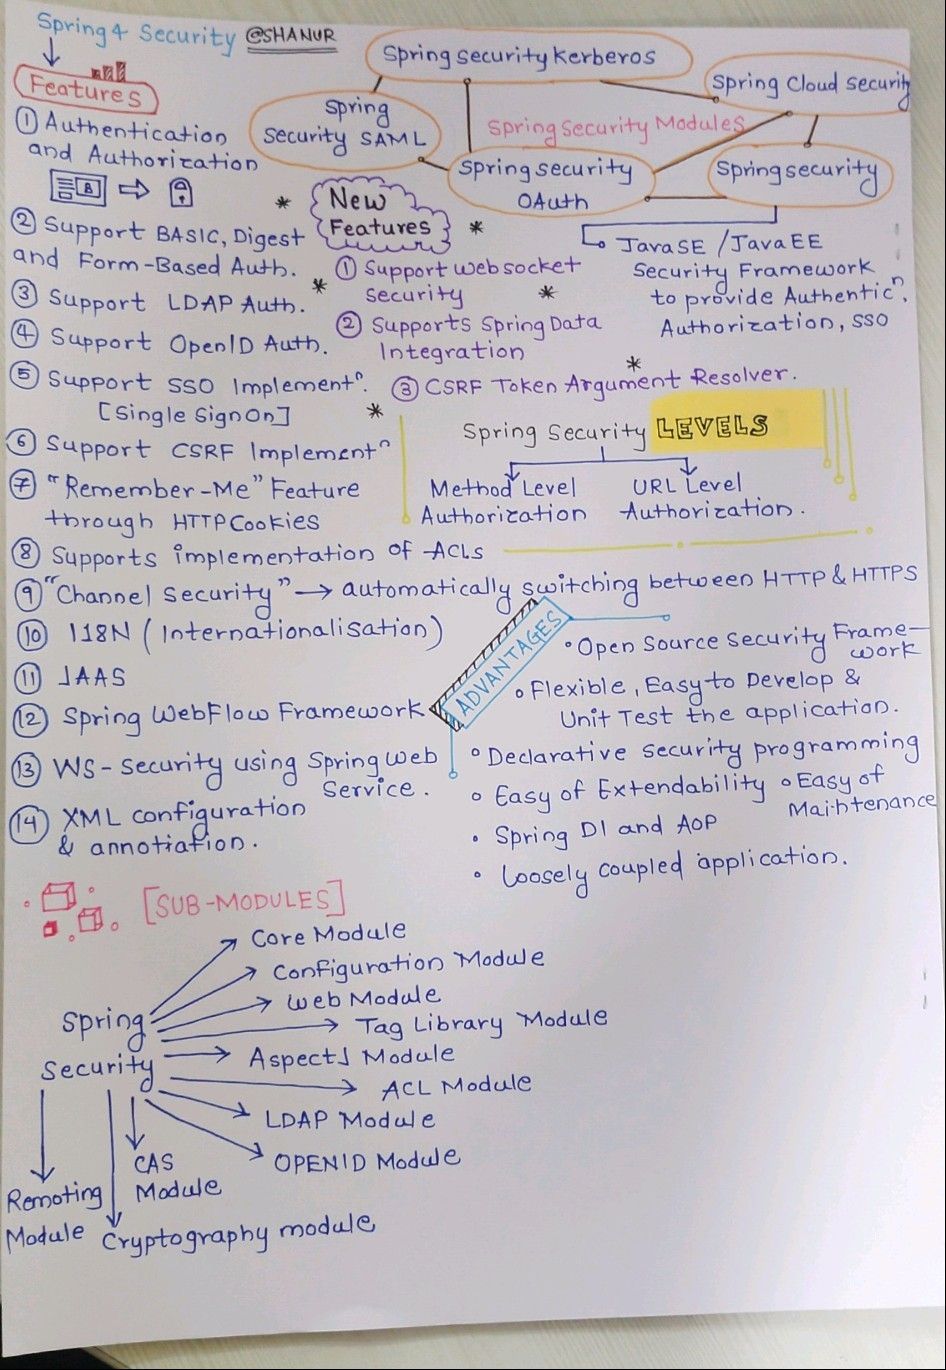 Spring 4 Security @SHANUR
Features
① Authentication
and Authorization
② Support BASIC, Digest
and Form-Based Auth.
③ Support LDAP Auth.
④ Support OpenID Auth.
⑤ Support SSO Implementⁿ.
[Single Sign On]
⑥ Support CSRF Implementⁿ
⑦ "Remember-Me" Feature
through HTTP Cookies
⑧ Supports implementation of ACLs
⑨ "Channel Security" → automatically switching between HTTP & HTTPS
⑩ I18N (Internationalisation)
⑪ JAAS
⑫ Spring WebFlow Framework
⑬ WS-Security using Spring Web
Service.
⑭ XML configuration
& annotiation.
Spring Security Kerberos
Spring Cloud Security
Spring
Security SAML
Spring Security Modules
Spring Security
OAuth
Spring Security
JavaSE / JavaEE
Security Framework
to provide Authenticⁿ,
Authorization, SSO
* New
Features *
① Support Websocket
Security
*
*
② Supports Spring Data
Integration
*
③ CSRF Token Argument Resolver.
*
Spring Security LEVELS
Method Level
Authorization
URL Level
Authorization.
ADVANTAGES
• Open Source Security Frame-
work
• Flexible, Easy to Develop &
Unit Test the application.
• Declarative security programming
• Easy of Extendability
• Easy of
Maintenance
• Spring DI and AOP
• Loosely coupled application.
[SUB-MODULES]
Spring
Security
Core Module
Configuration Module
Web Module
Tag Library Module
AspectJ Module
ACL Module
LDAP Module
OPENID Module
CAS
Module
Remoting
Module
Cryptography module